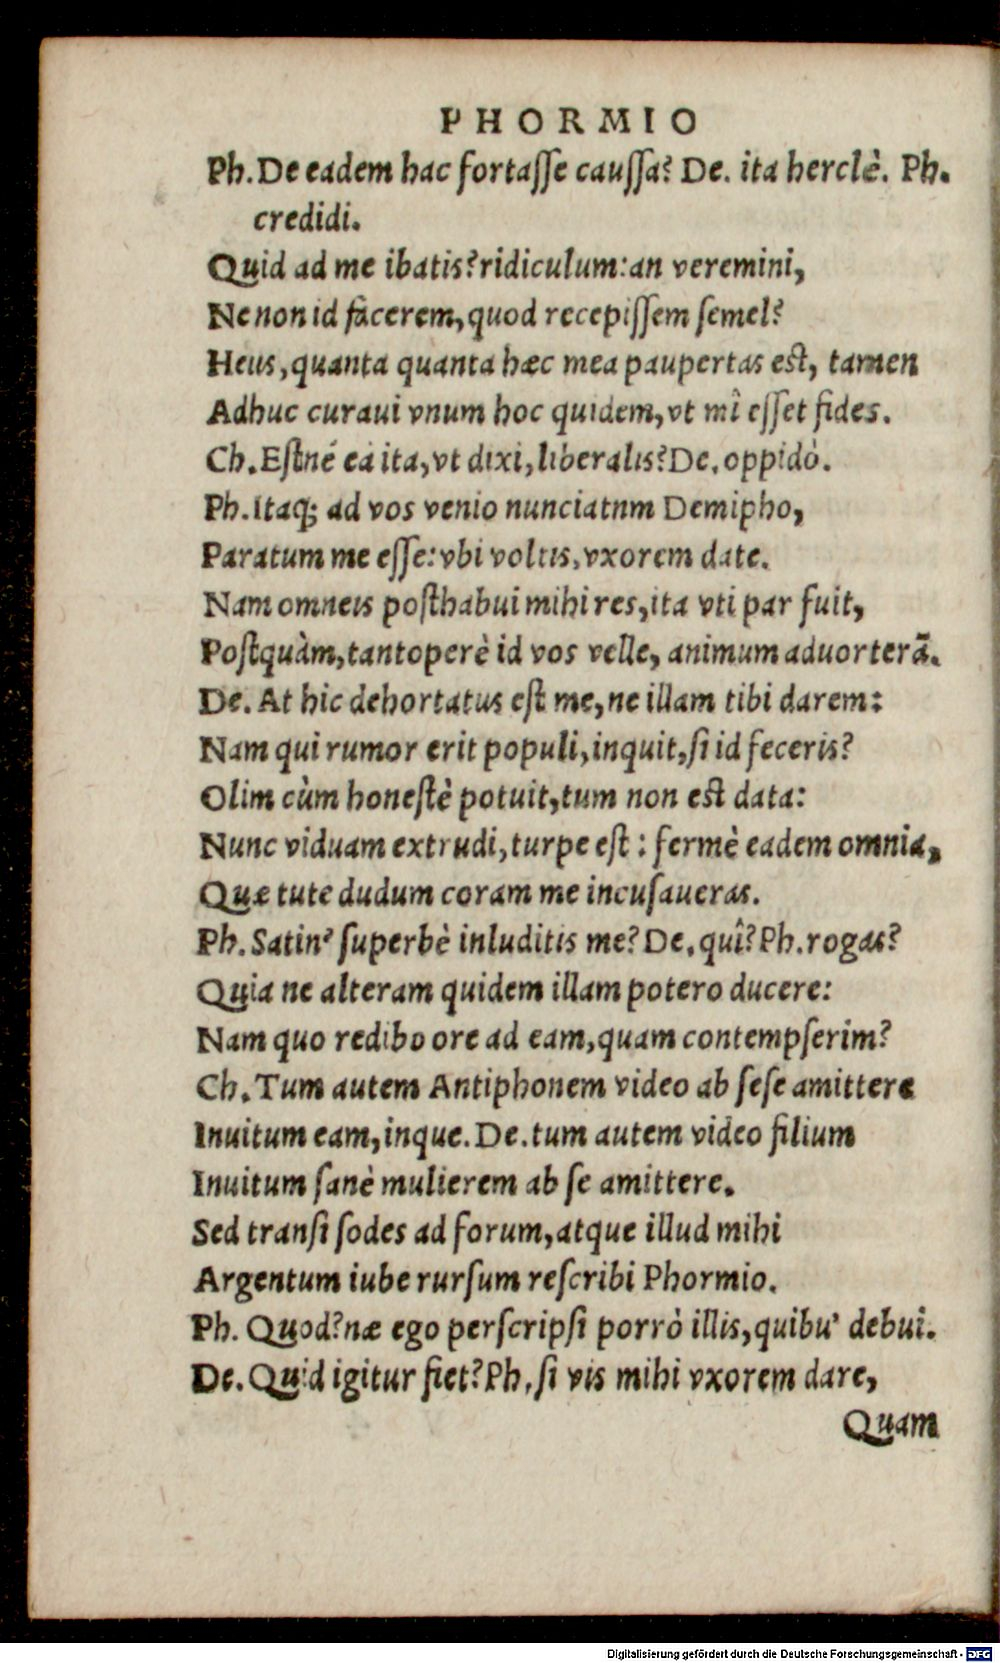 PHORMIO
Ph. De eadem hac fortaſſe cauſſa? De. ita herclè. Ph.
credidi.
Quid ad me ibatis? ridiculum: an veremini,
Ne non id facerem, quod recepiſſem ſemel?
Heus, quanta quanta hæc mea paupertas est, tamen
Adhuc curaui vnum hoc quidem, vt mî eſſet fides.
Ch. Eſtné ea ita, vt dixi, liberalis? De. oppidò.
Ph. Itaq; ad vos venio nunciatnm Demipho,
Paratum me eſſe: vbi voltis, vxorem date.
Nam omneis poſthabui mihi res, ita vti par fuit,
Poſtquàm, tantoperè id vos velle, animum aduorterā.
De. At hic dehortatus eſt me, ne illam tibi darem:
Nam qui rumor erit populi, inquit, ſi id feceris?
Olim cùm honeſtè potuit, tum non est data:
Nunc viduam extrudi, turpe eſt: fermè eadem omnia,
Quæ tute dudum coram me incuſaueras.
Ph. Satin' ſuperbè inluditis me? De. quî? Ph. rogas?
Quia ne alteram quidem illam potero ducere:
Nam quo redibo ore ad eam, quam contempſerim?
Ch. Tum autem Antiphonem video ab ſeſe amittere
Inuitum eam, inque. De. tum autem video filium
Inuitum ſanè mulierem ab ſe amittere.
Sed tranſi ſodes ad forum, atque illud mihi
Argentum iube rurſum reſcribi Phormio.
Ph. Quod? næ ego perſcripſi porrò illis, quibu' debui.
De. Quid igitur fiet? Ph. ſi vis mihi vxorem dare,
Quam
Digitalisierung gefördert durch die Deutsche Forschungsgemeinschaft - DFG